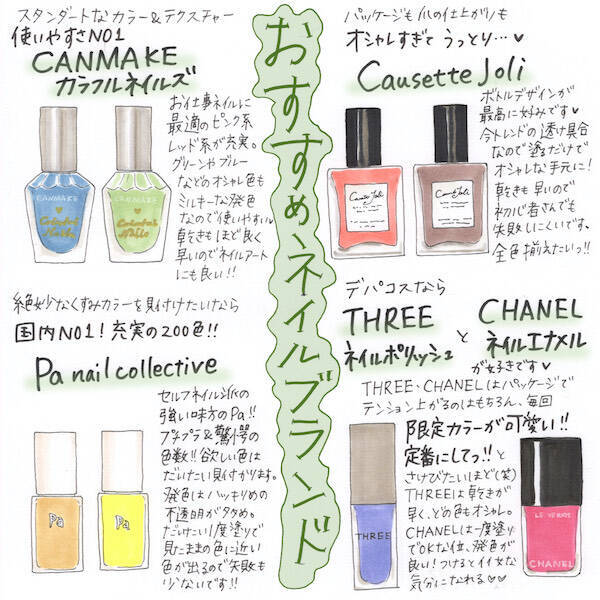 おすすめネイルブランド
スタンダードなカラー&テクスチャー
使いやすさNO1
CANMAKE
カラフルネイルズ
お仕事ネイルに
最適のピンク系
レッド系が充実。
グリーンやブルー
などのオシャレ色も
ミルキーな発色
なので使いやすい♥
乾きもほど良く
早いのでネイルアート
にも良い!!
CANMAKE
Colorful
Nails
CANMAKE
Colorful
Nails
パッケージも爪の仕上がりも
オシャレすぎて うっとり…♥
Causette Joli
ボトルデザインが
最高に好みです♥
今トレンドの透け具合
なので塗るだけで
オシャレな手元に!
乾きも早いので
初心者さんでも
失敗しにくいです。
全色揃えたいっ!!
Causette Joli
Causette Joli
絶妙なくすみカラーを見付けたいなら
国内NO1!充実の200色!!
Pa nail collective
セルフネイル派の
強い味方のPa!!
プチプラ&驚愕の
色数!!欲しい色は
だいたい見付かります。
発色はハッキリめの
不透明がタタめ。
だいたい1度塗りで
見たままの色に近い
色が出るので失敗も
少ないです!!
Pa
Pa
デパコスなら
THREE
ネイルポリッシュ
と
CHANEL
ネイルエナメル
が好きです♥
THREE、CHANELはパッケージで
テンション上がるのはもちろん、毎回
限定カラーが可愛い!!
定番にしてっ!!と
さけびたいほど(笑)
THREEは乾きが
早く、どの色もオシャレ。
CHANELは一度塗り
でOKな位、発色が
良い!つけるとイイ女な
気分になれる♥♥
THREE
LE VERNIS
CHANEL